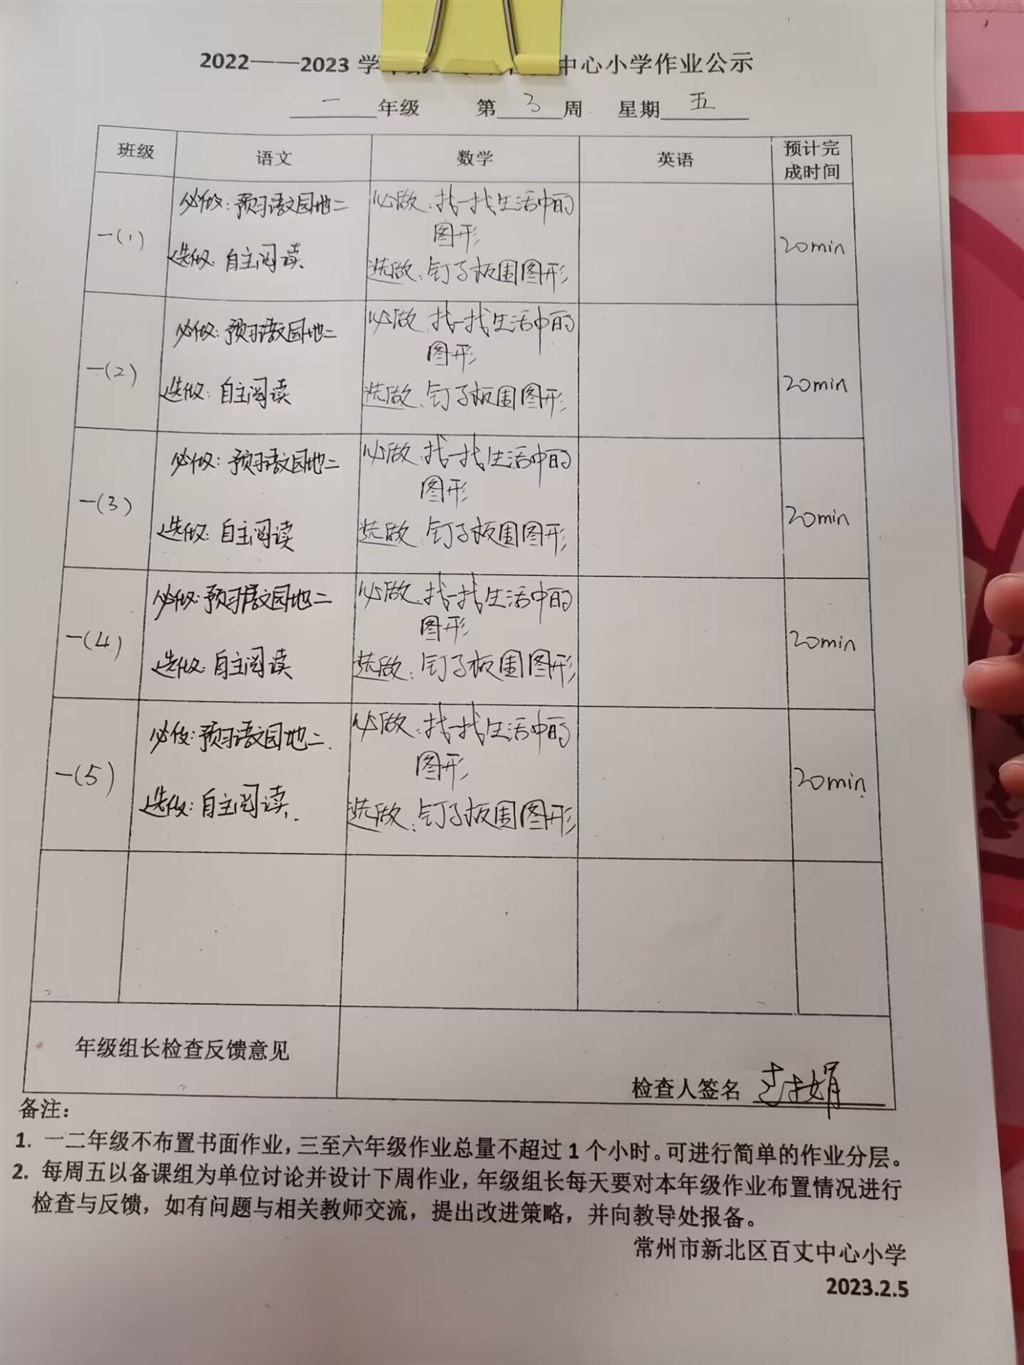 2022——2023 学 中心小学作业公示
二 年级 第 3 周 星期 五
班级 语文 数学 英语 预计完成时间
一(1) 必做: 预习语文园地二 必做: 找一找生活中的
图形 20min
选做: 自主阅读 选做: 钉子板围图形
一(2) 必做: 预习语文园地二 必做: 找一找生活中的
图形 20min
选做: 自主阅读 选做: 钉子板围图形
一(3) 必做: 预习语文园地二 必做: 找一找生活中的
图形 20min
选做: 自主阅读 选做: 钉子板围图形
一(4) 必做: 预习语文园地二 必做: 找一找生活中的
图形 20min
选做: 自主阅读 选做: 钉子板围图形
一(5) 必做: 预习语文园地二. 必做: 找一找生活中的
图形 20min
选做: 自主阅读. 选做: 钉子板围图形
年级组长检查反馈意见
检查人签名
备注:
1. 一二年级不布置书面作业，三至六年级作业总量不超过 1 个小时。可进行简单的作业分层。
2. 每周五以备课组为单位讨论并设计下周作业，年级组长每天要对本年级作业布置情况进行
检查与反馈，如有问题与相关教师交流，提出改进策略，并向教导处报备。
常州市新北区百丈中心小学
2023.2.5